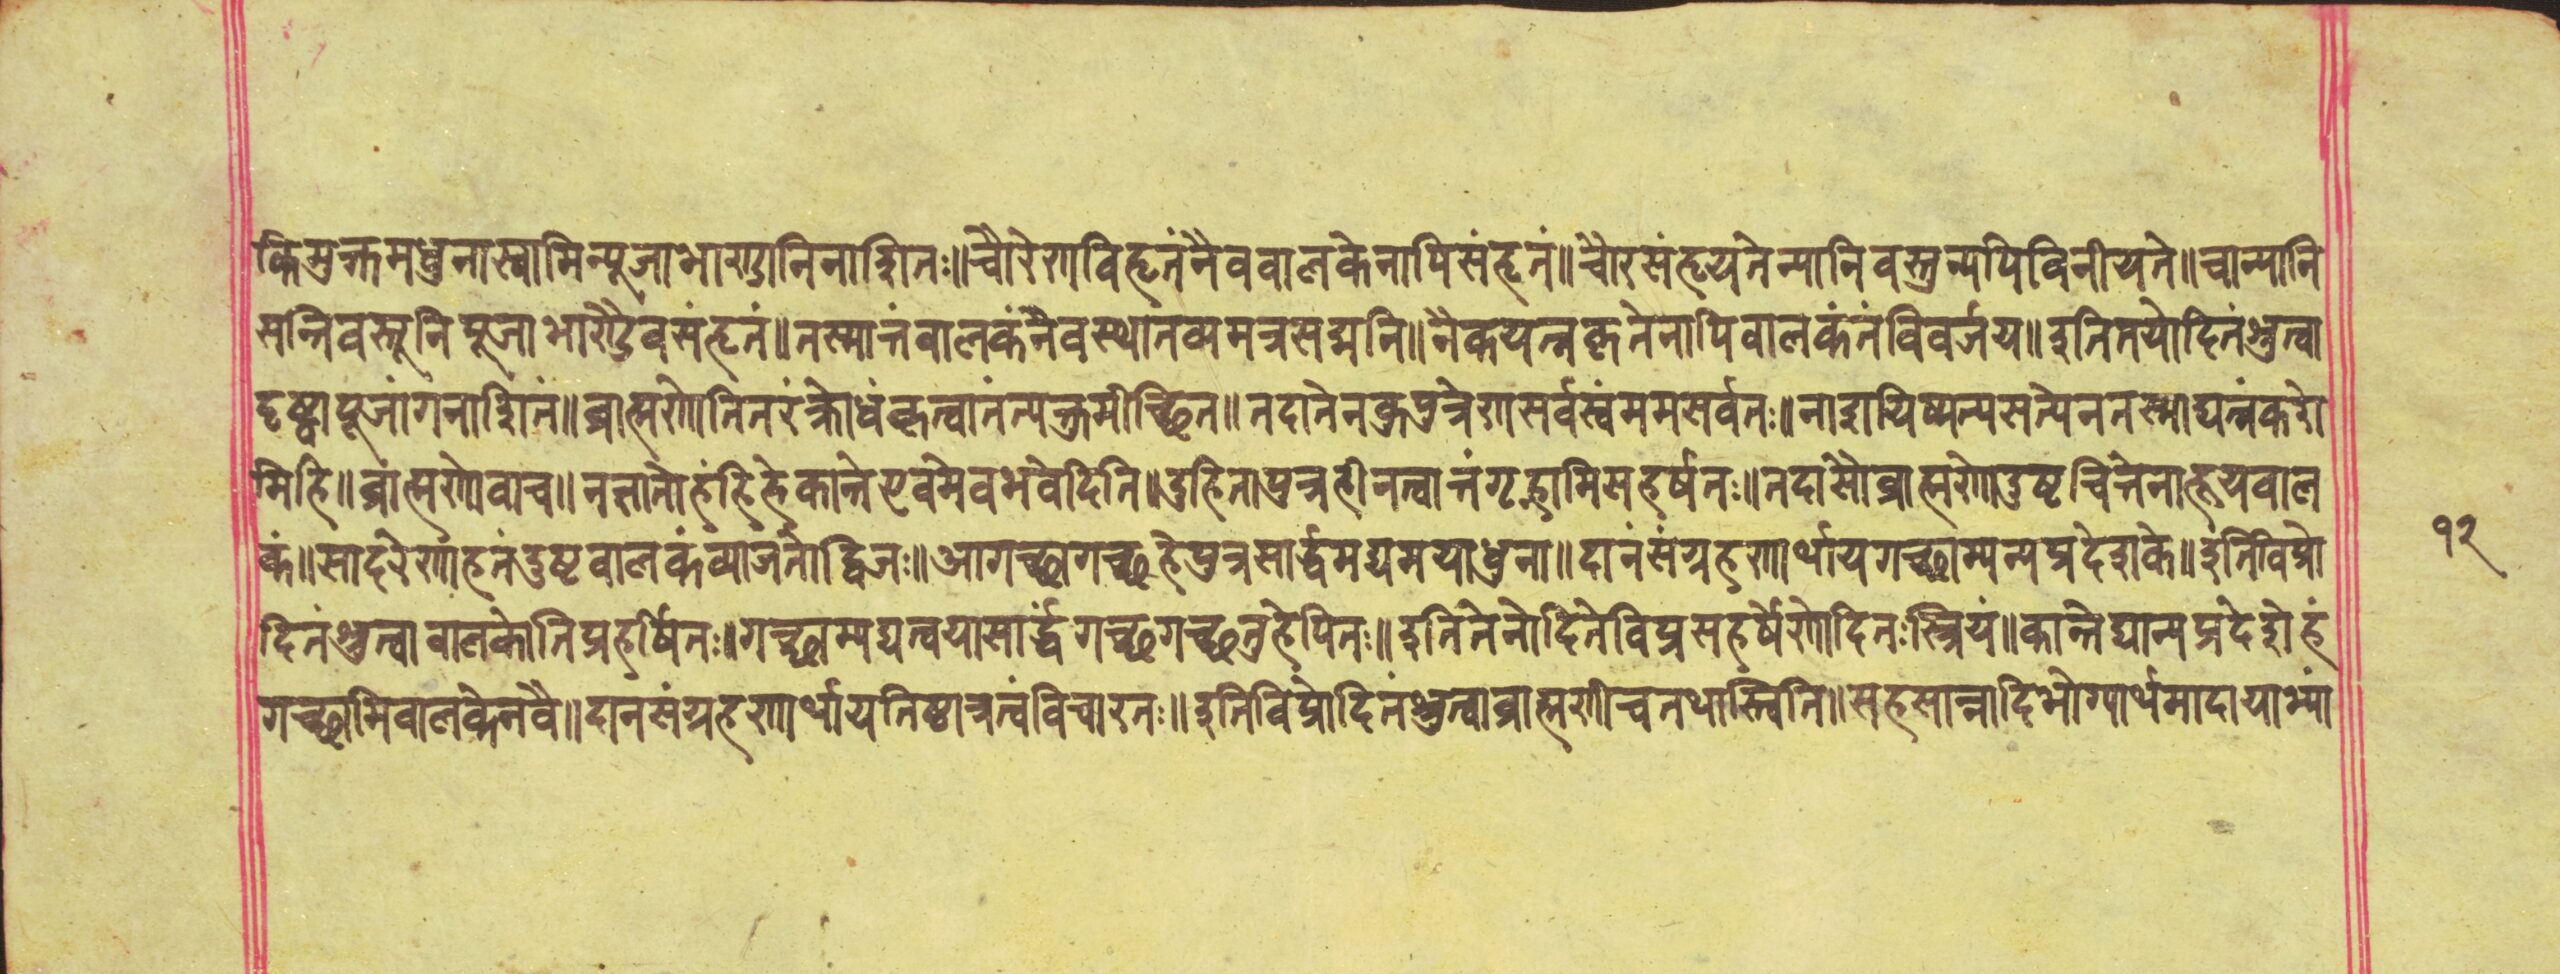 किमुक्तमधुनास्वामिन्पूजाभाण्डानिनाशितः॥चौरेणविहृतंनैवबालकेनापिसंहृतं॥चौरसंहृयतेन्यानिवस्तुन्यपिविनीयते॥चान्यानि
सन्तिवस्तूनिपूजाभाण्डैवसंहृतं॥तस्मात्तंबालकंनैवस्थातव्यमत्रसद्मनि॥नैकयत्नकृतेनापिबालकंतंविवर्जय॥इतितयोदितंश्रुत्वा
दृष्ट्वापूजांगनाशितं॥ब्राह्मणोतितरंक्रोधंकृत्वातंत्यक्तुमीच्छित॥तदातेनकुपुत्रेणसर्वस्वंममसर्वतः॥नाशयिष्यन्यसत्येनतस्माद्यत्नंकरो
मिहि॥ब्राह्मणोवाच॥नज्ञातोहंहिहेकान्तेएवमेवभवेदिति॥दुहितापुत्रहीनत्वात्तंगृह्णामिसहर्षतः॥तदासौब्राह्मणोदुष्टचित्तेनाहूयबाल
कं॥सादरेणाहतंदुष्टबालकंव्याजतोद्विजः॥आगच्छागच्छहेपुत्रसार्द्धमद्यमयाधुना॥दानंसंग्रहणार्थायगच्छाम्यन्यप्रदेशके॥इतिविप्रो
दितंश्रुत्वाबालकोतिप्रहर्षितः॥गच्छाम्यद्यत्वयासार्द्धंगच्छगच्छतुहेपितः॥इतितेनोदितेविप्रसहर्षेणोदितःस्त्रियं॥कान्तेद्यान्यप्रदेशेहं
गच्छामिबालकेनवै॥दानसंग्रहणार्थायतिष्ठात्रत्वंविचारतः॥इतिविप्रोदितंश्रुत्वाब्राह्मणीचतथास्त्विति॥सहसान्नादिभोग्यार्थमादायाभ्यां
१२